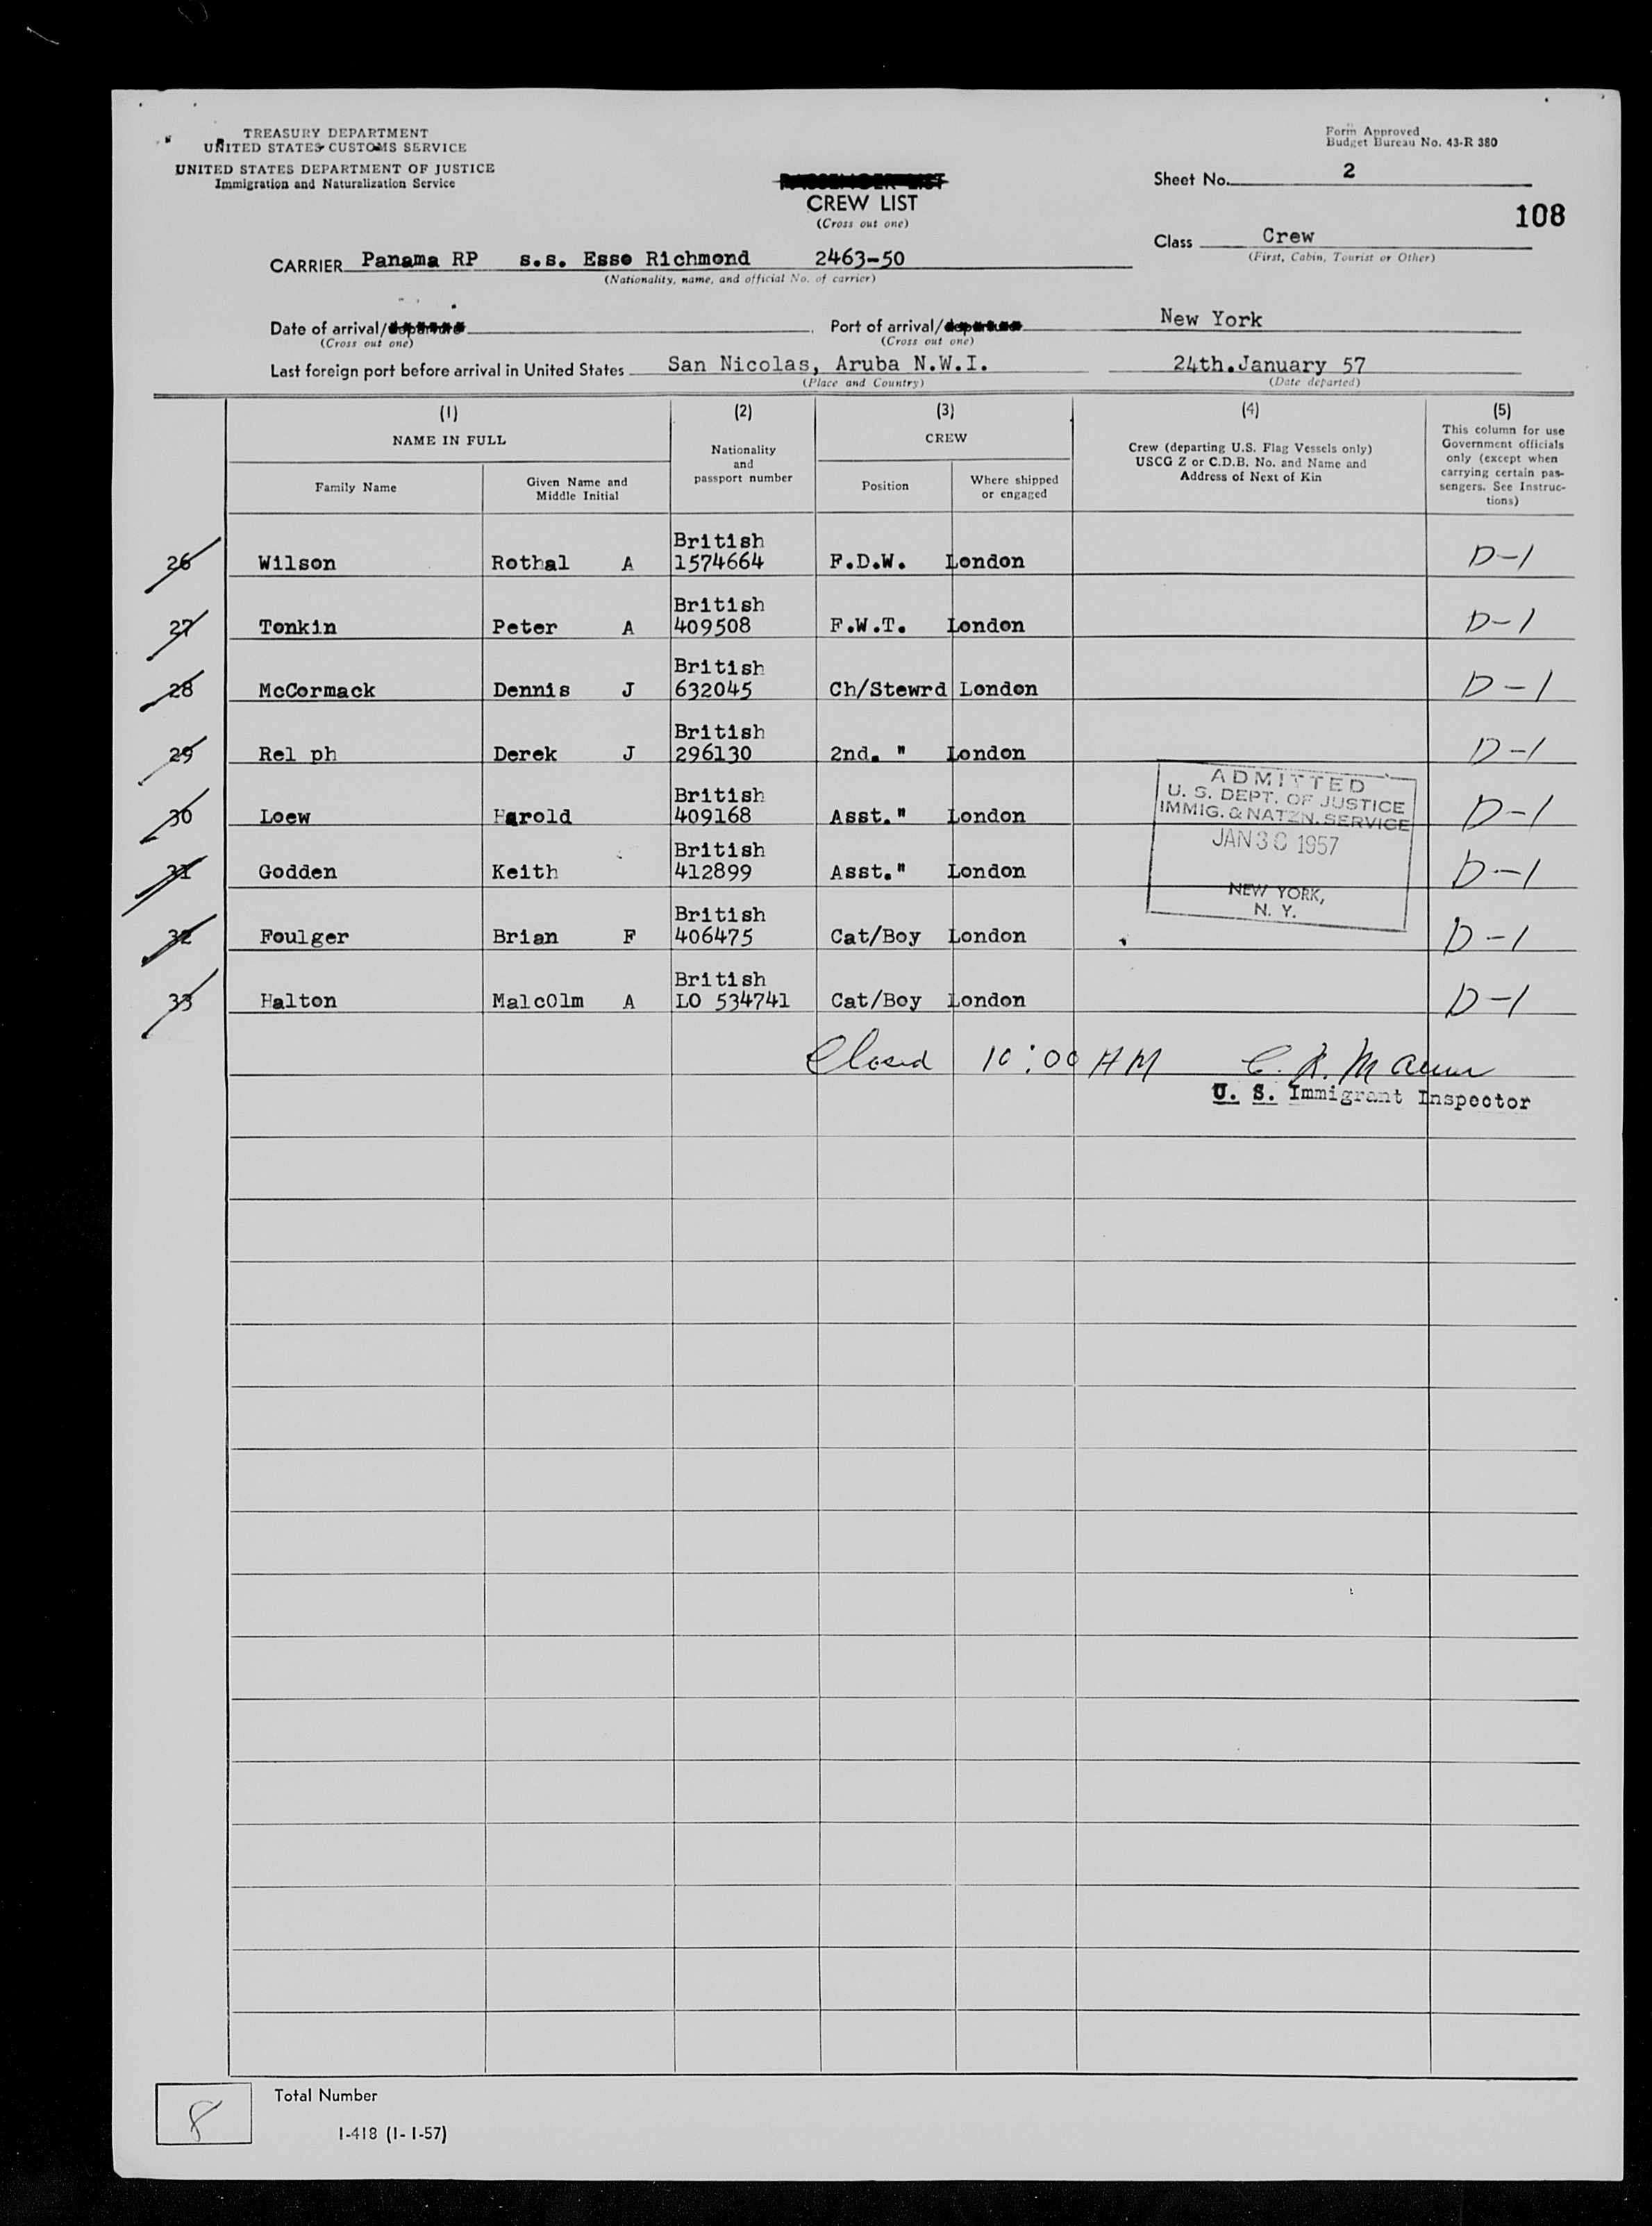 TREASURY DEPARTMENT
UNITED STATES CUSTOMS SERVICE
UNITED STATES DEPARTMENT OF JUSTICE
Immigration and Naturalization Service
Form Approved
Budget Bureau No. 43-R 380
PASSENGER LIST
CREW LIST
(Cross out one)
Sheet No. 2
108
Class Crew
(First, Cabin, Tourist or Other)
CARRIER Panama RP s.s. Esso Richmond 2463-50
(Nationality, name, and official No. of carrier)
Date of arrival/departure
(Cross out one)
Port of arrival/departure New York
(Cross out one)
Last foreign port before arrival in United States San Nicolas, Aruba N.W.I. 24th.January 57
(Place and Country) (Date departed)
(1) (2) (3) (4) (5)
NAME IN FULL
Family Name
Given Name and
Middle Initial
Nationality
and
passport number
CREW
Position
Where shipped
or engaged
Crew (departing U.S. Flag Vessels only)
USCG Z or C.D.B. No. and Name and
Address of Next of Kin
This column for use
Government officials
only (except when
carrying certain pas-
sengers. See Instruc-
tions)
British
26 Wilson Rothal A 1574664 F.D.W. London D-1
British
27 Tonkin Peter A 409508 F.W.T. London D-1
British
28 McCormack Dennis J 632045 Ch/Stewrd London D-1
British
29 Rel ph Derek J 296130 2nd. " London D-1
British
30 Loew Harold 409168 Asst." London D-1
British
31 Godden Keith 412899 Asst." London D-1
British
32 Foulger Brian F 406475 Cat/Boy London D-1
British
33 Halton Malc0lm A LO 534741 Cat/Boy London D-1
ADMITTED
U. S. DEPT. OF JUSTICE
IMMIG. & NATZN. SERVICE
JAN 30 1957
NEW YORK,
N. Y.
Closed 10:00 AM C. R. Mann
U. S. Immigrant Inspector
8
Total Number
I-418 (1-1-57)